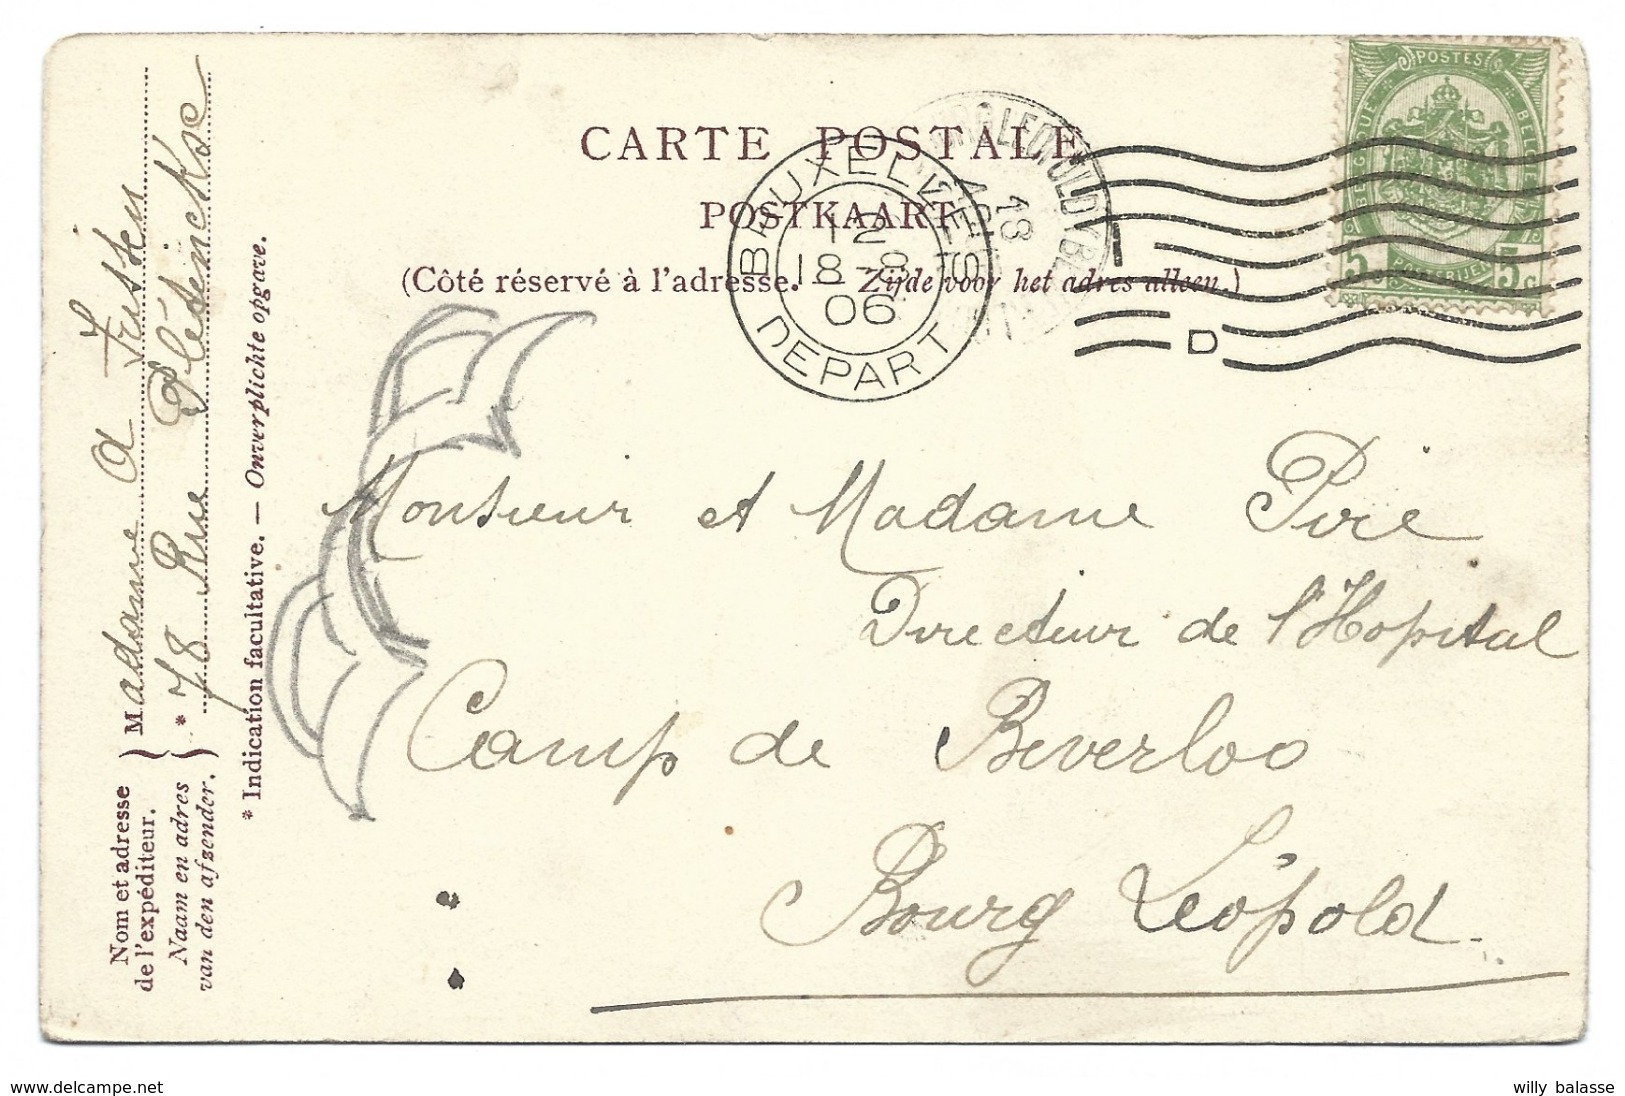 CARTE POSTALE
POSTKAART
(Côté réservé à l'adresse. — Zijde voor het adres alleen.)
BRUXELLES
12
18-
06
DEPART
18
D
POSTES
BELGIQUE
BELGIE
POSTERIJEN
5c 5c
Monsieur et Madame Piré
Directeur de l'Hopital
Camp de Beverloo
Bourg Léopold
Nom et adresse
de l'expéditeur.
Naam en adres
van den afzender.
Madame a
* 78 Rue
* Indication facultative. — Onverplichte opgave.
www.delcampe.net
willy balasse